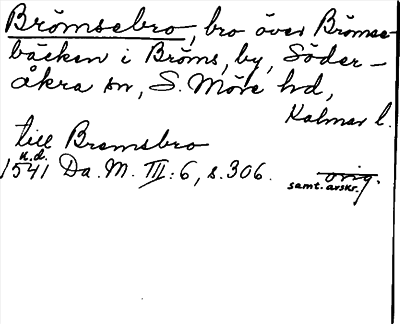 Brömsebro, bro över Brömse-
bäcken i Bröms, by, Söder-
åkra sn, S. Möre hd,
Kalmar l.
till Bremsbro
u.d.
1541 Da. M. III: 6, s. 306. orig.
samt. avskr.